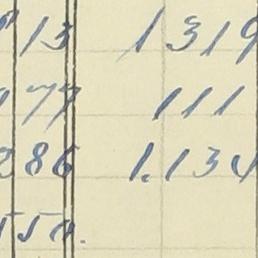 13 1319
77 111
286 1.134
550.